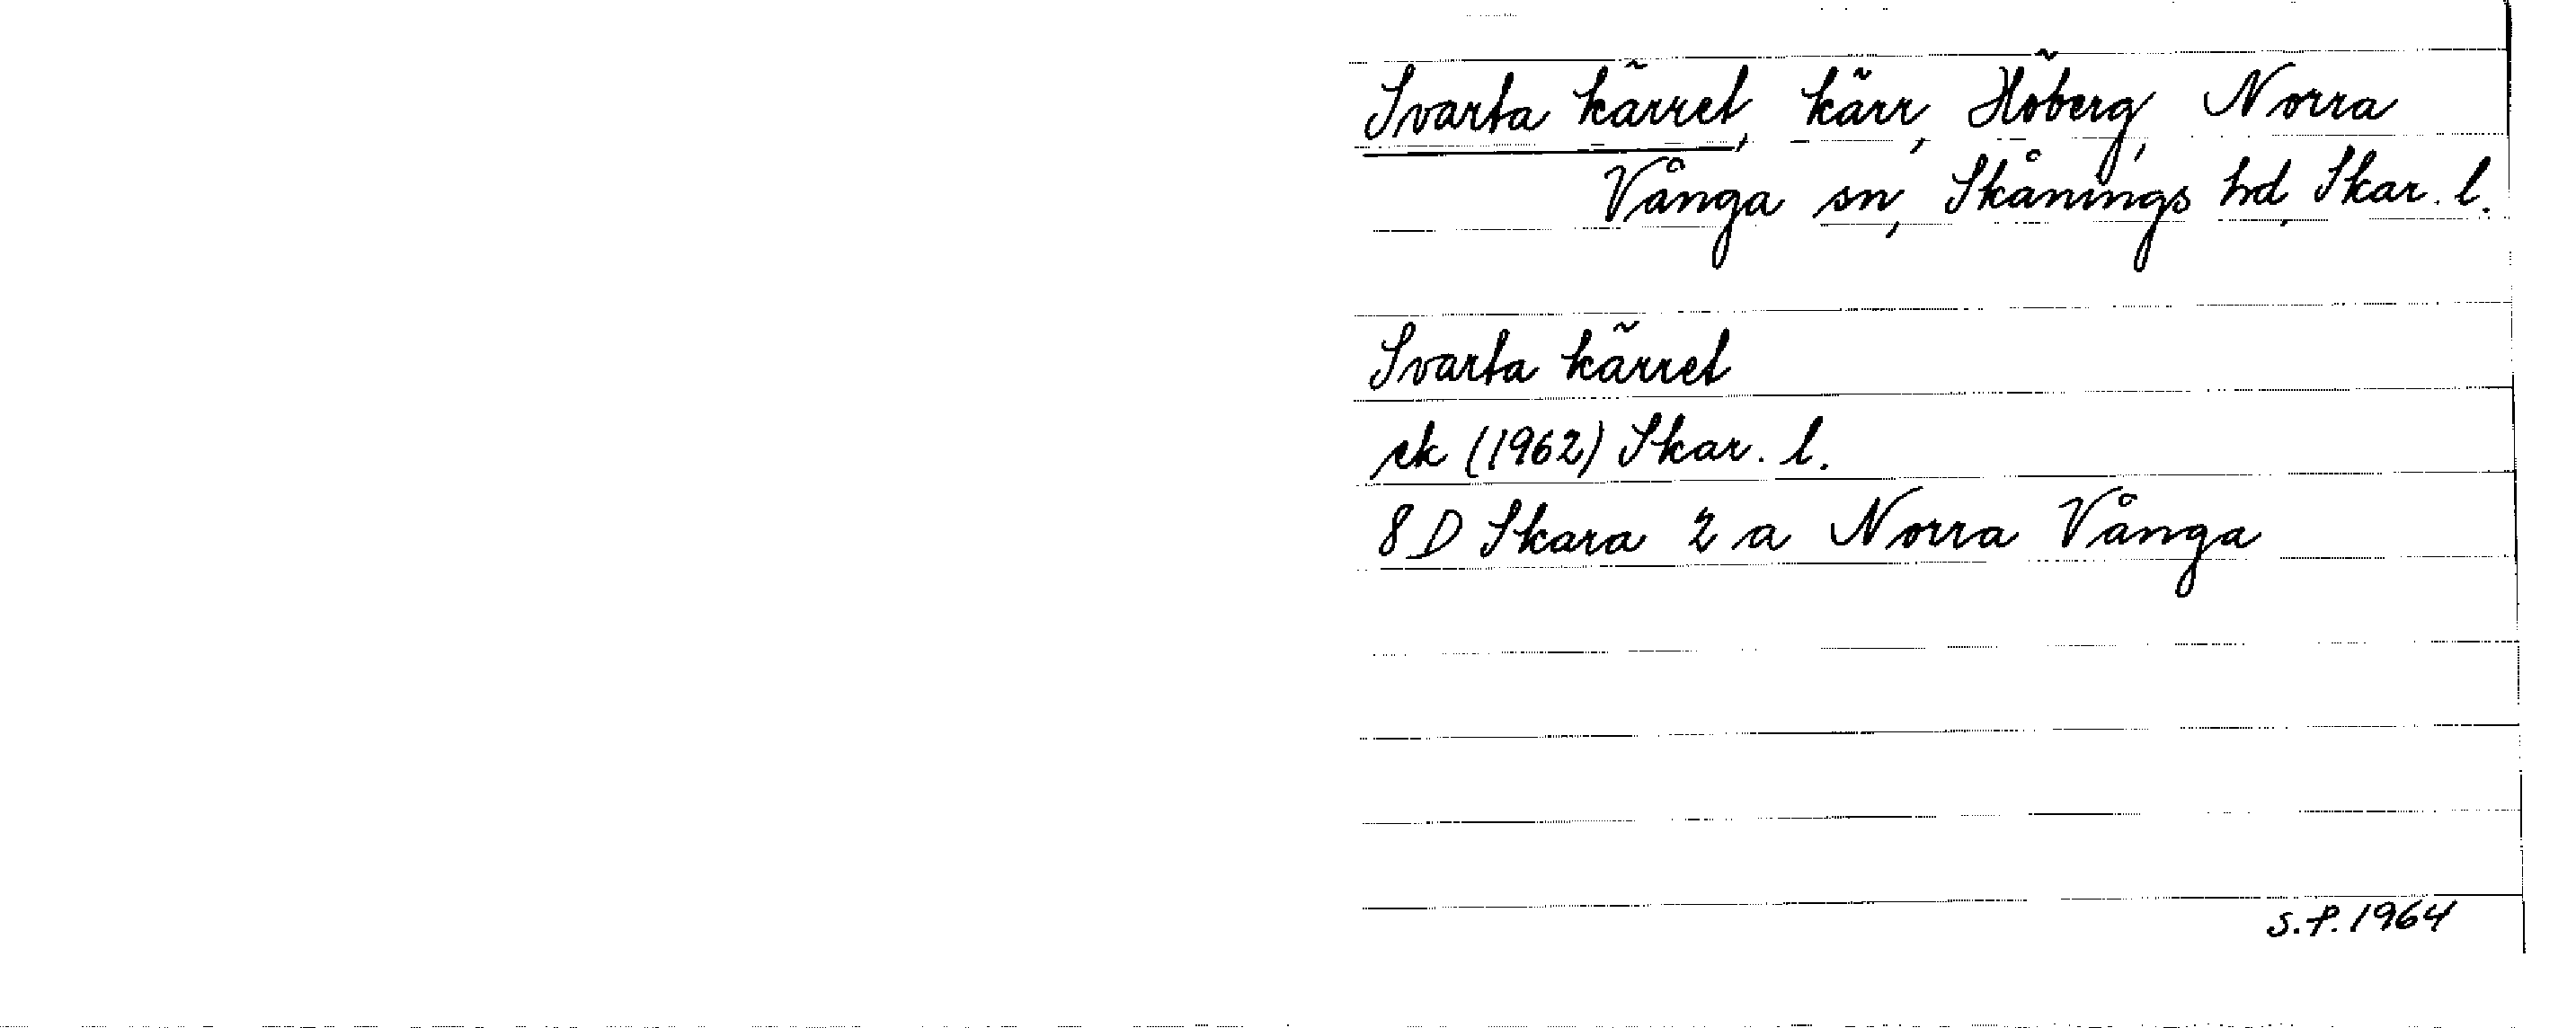 Svarta kärret, kärr, Höberg, Norra
Vånga sn, Skånings hd, Skar. l.
Svarta kärret
ek (1962) Skar. l.
8 D Skara 2 a Norra Vånga
S.P. 1964